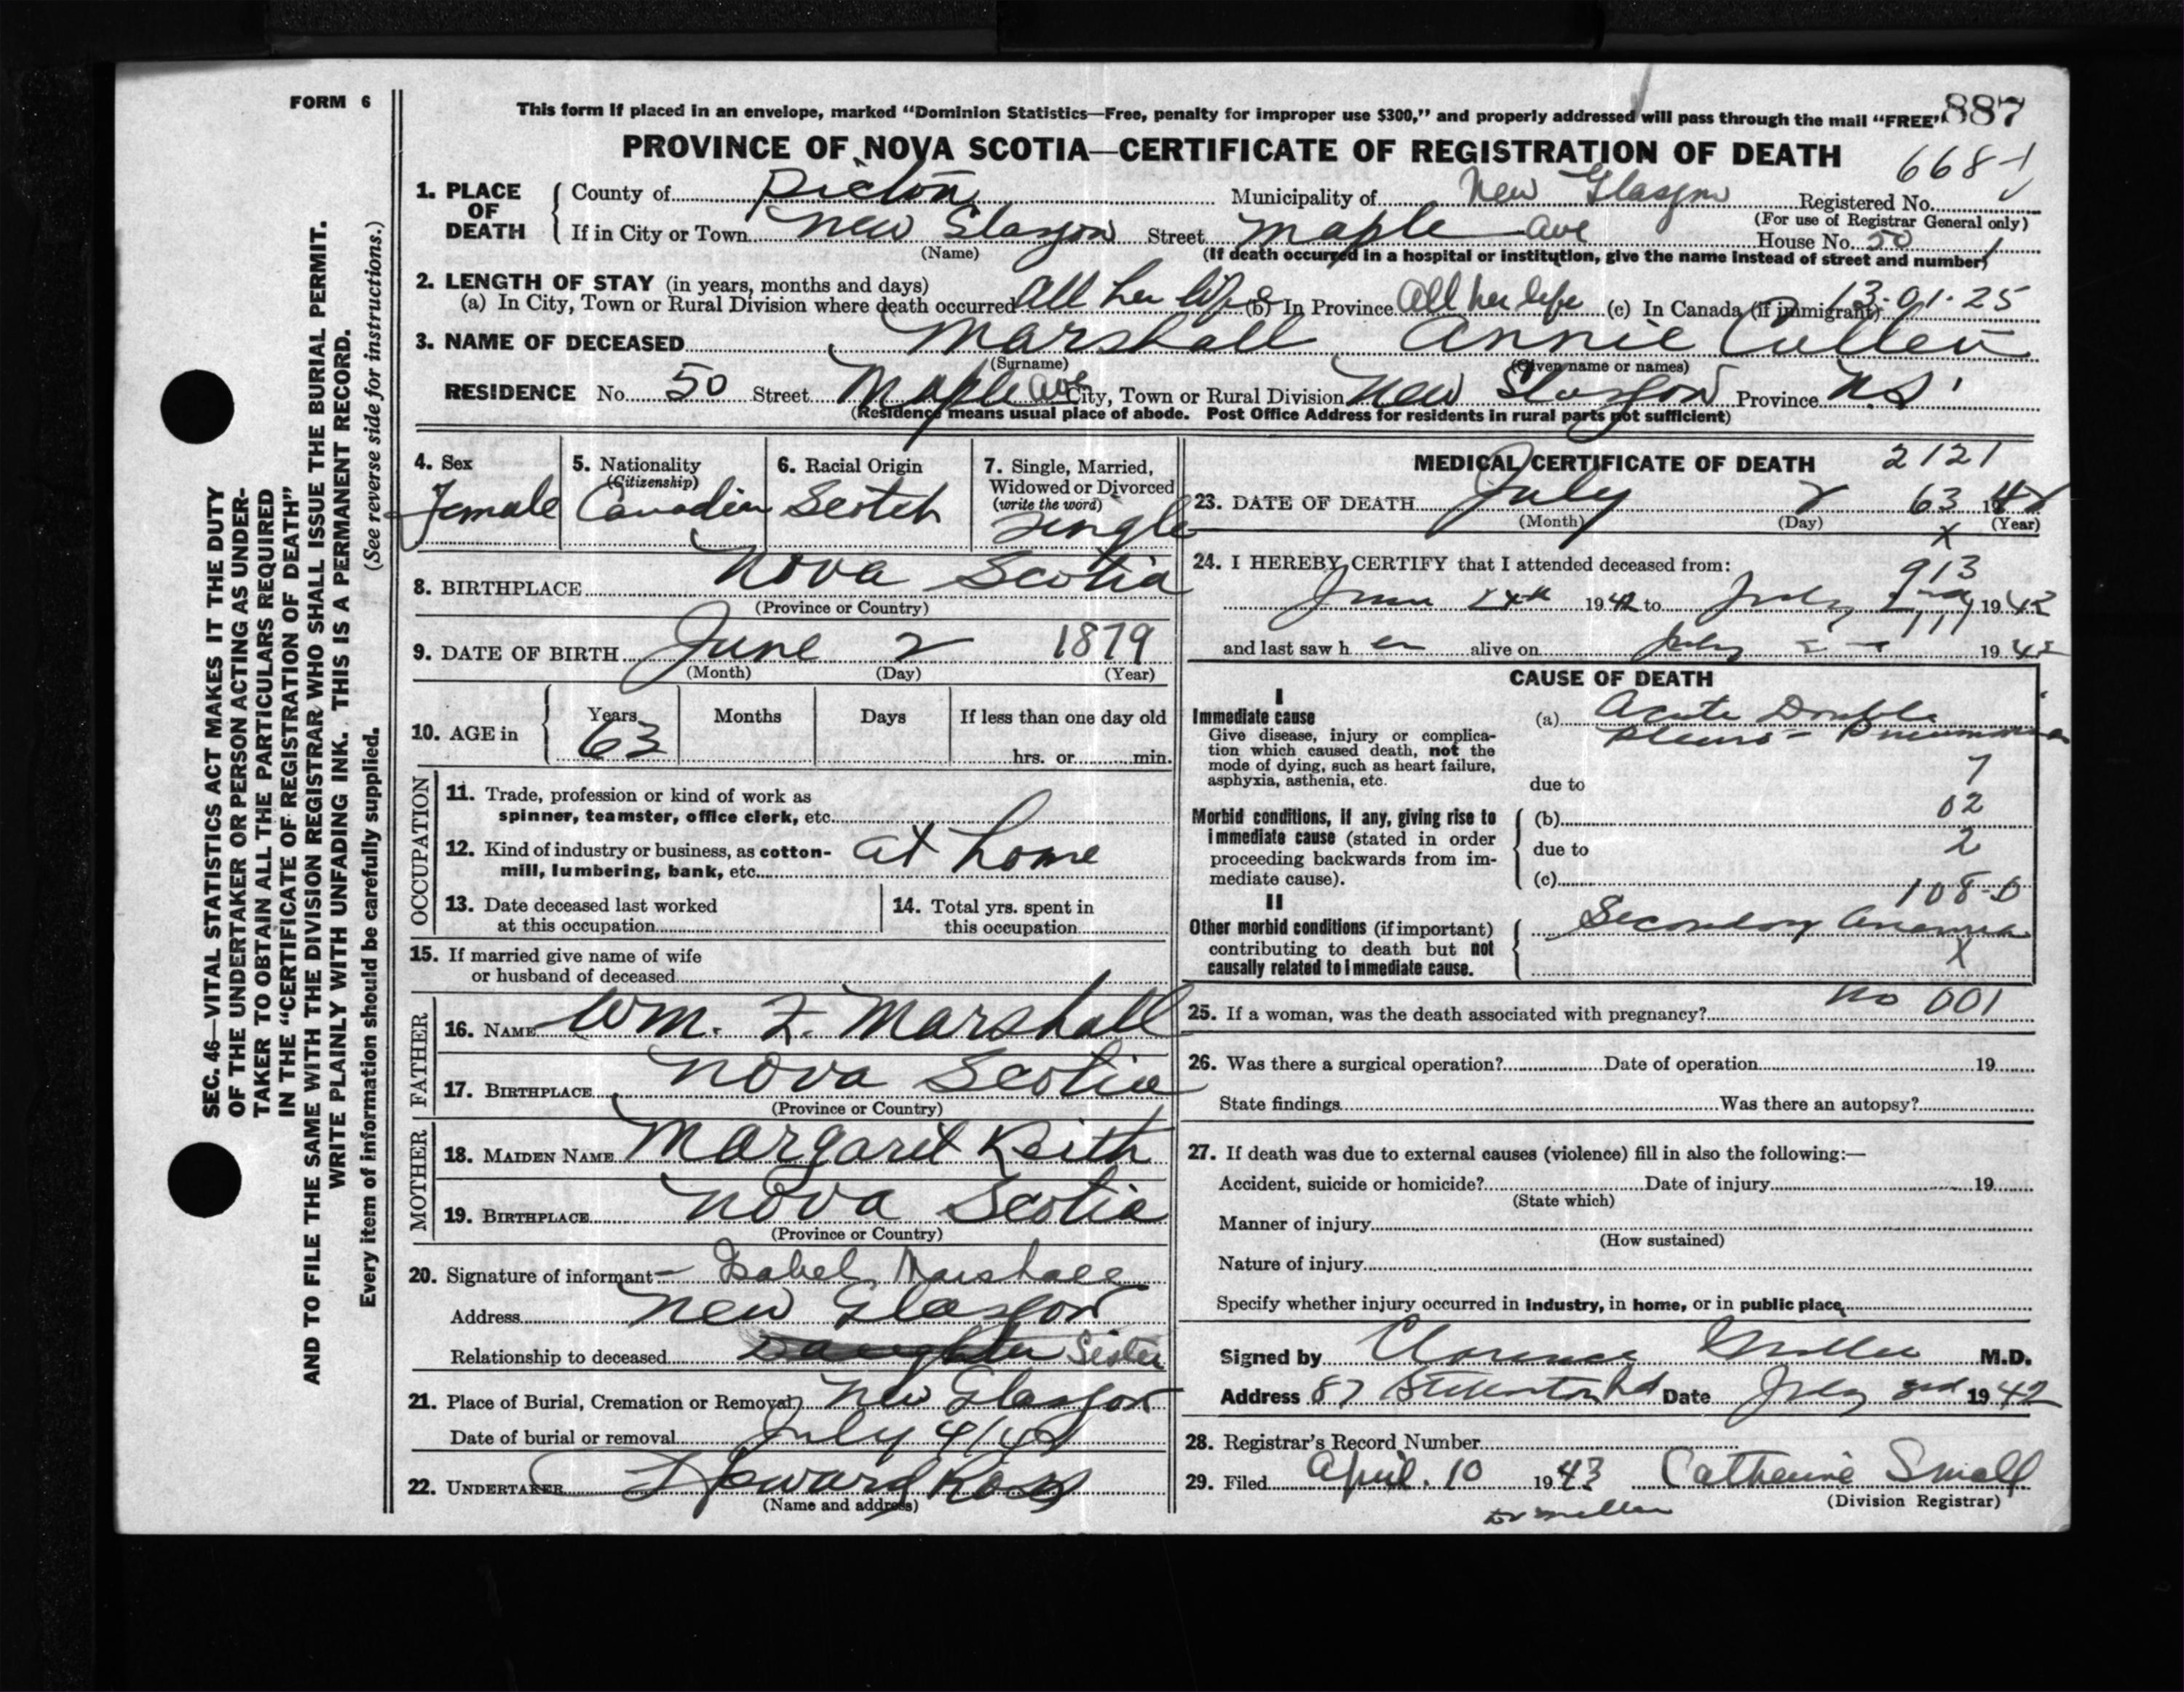 FORM 6
This form if placed in an envelope, marked “Dominion Statistics—Free, penalty for improper use $300,” and properly addressed will pass through the mail “FREE” 887
PROVINCE OF NOVA SCOTIA—CERTIFICATE OF REGISTRATION OF DEATH
668-1
1. PLACE OF DEATH
County of Pictou Municipality of New Glasgow Registered No.
(For use of Registrar General only)
If in City or Town New Glasgow Street Maple Ave House No. 50
(Name)
(If death occurred in a hospital or institution, give the name instead of street and number)
2. LENGTH OF STAY (in years, months and days)
(a) In City, Town or Rural Division where death occurred All her life (b) In Province All her life (c) In Canada (if immigrant) 13-01-25
3. NAME OF DECEASED Marshall Annie Cullen
(Surname) (Given name or names)
RESIDENCE No. 50 Street Maple Ave City, Town or Rural Division New Glasgow Province N.S.
(Residence means usual place of abode. Post Office Address for residents in rural parts not sufficient)
4. Sex
Female
5. Nationality
(Citizenship)
Canadian
6. Racial Origin
Scotch
7. Single, Married,
Widowed or Divorced
(write the word)
Single
8. BIRTHPLACE Nova Scotia
(Province or Country)
9. DATE OF BIRTH June 2 1879
(Month) (Day) (Year)
10. AGE in
Years Months Days If less than one day old
63 hrs. or min.
OCCUPATION
11. Trade, profession or kind of work as
spinner, teamster, office clerk, etc.
12. Kind of industry or business, as cotton-
mill, lumbering, bank, etc. at home
13. Date deceased last worked
at this occupation
14. Total yrs. spent in
this occupation
15. If married give name of wife
or husband of deceased
FATHER
16. NAME Wm. F. Marshall
17. BIRTHPLACE Nova Scotia
(Province or Country)
MOTHER
18. MAIDEN NAME Margaret Keith
19. BIRTHPLACE Nova Scotia
(Province or Country)
20. Signature of informant Isabel Marshall
Address New Glasgow
Relationship to deceased Daughter Sister
21. Place of Burial, Cremation or Removal New Glasgow
Date of burial or removal July 4/42
22. UNDERTAKER Howard Ross
(Name and address)
MEDICAL CERTIFICATE OF DEATH 2121
23. DATE OF DEATH July 2 63 1942
(Month) (Day) (Year)
x
24. I HEREBY CERTIFY that I attended deceased from:
913
June 1942 to July 2nd 1942
111
and last saw her alive on July 2 1942
CAUSE OF DEATH
I
Immediate cause
Give disease, injury or complica-
tion which caused death, not the
mode of dying, such as heart failure,
asphyxia, asthenia, etc.
(a) Acute Double
Pleuro-Pneumonia
7
due to
Morbid conditions, if any, giving rise to
immediate cause (stated in order
proceeding backwards from im-
mediate cause).
02
(b)
due to 2
(c)
108-D
II
Other morbid conditions (if important)
contributing to death but not
causally related to immediate cause.
Secondary Anemia
X
25. If a woman, was the death associated with pregnancy? no 001
26. Was there a surgical operation? Date of operation 19
State findings Was there an autopsy?
27. If death was due to external causes (violence) fill in also the following:—
Accident, suicide or homicide? Date of injury 19
(State which)
Manner of injury
(How sustained)
Nature of injury
Specify whether injury occurred in industry, in home, or in public place
Signed by Clarence Miller M.D.
Address 87 Stellarton Rd Date July 3rd 1942
28. Registrar's Record Number
29. Filed April 10 1943 Catherine Small
(Division Registrar)
Dr Miller
SEC. 46—VITAL STATISTICS ACT MAKES IT THE DUTY
OF THE UNDERTAKER OR PERSON ACTING AS UNDER-
TAKER TO OBTAIN ALL THE PARTICULARS REQUIRED
IN THE “CERTIFICATE OF REGISTRATION OF DEATH”
AND TO FILE THE SAME WITH THE DIVISION REGISTRAR WHO SHALL ISSUE THE BURIAL PERMIT.
WRITE PLAINLY WITH UNFADING INK. THIS IS A PERMANENT RECORD.
Every item of information should be carefully supplied. (See reverse side for instructions.)